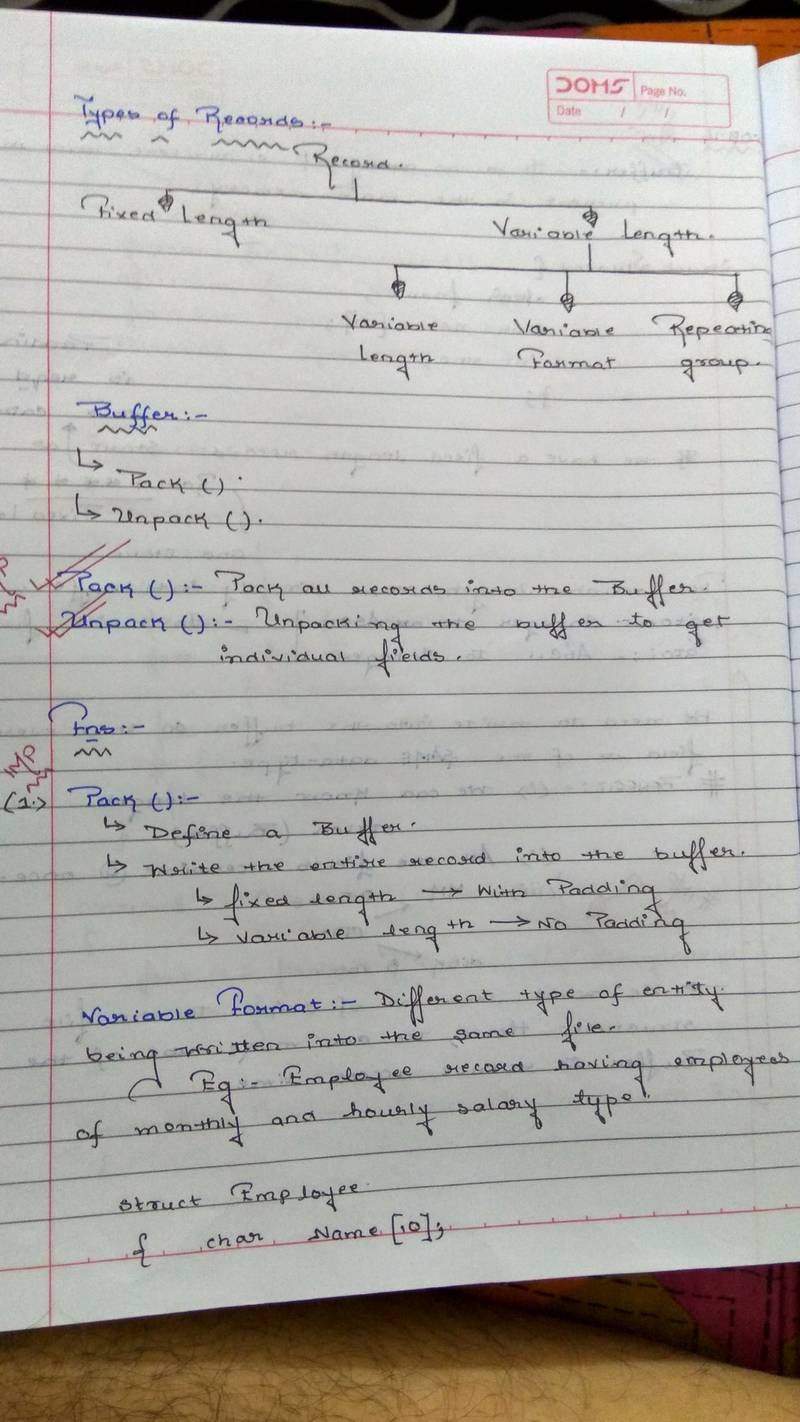 DOMS
Page No.
Date / /
Types of Records:-
Record.
Fixed Length
Variable Length.
Variable Variable Repeating
Length Format group.
Buffer:-
↳ Pack ().
↳ Unpack ().
Pack ():- Pack all records into the Buffer.
Unpack ():- Unpacking the buffer to get
individual fields.
Fns:-
(1.) Pack ():-
↳ Define a Buffer.
↳ Write the entire record into the buffer.
↳ fixed length → With Padding
↳ variable length → No Padding
Variable Format:- Different type of entity
being written into the same file.
Eg:- Employee record having employees
of monthly and hourly salary type.
struct Employee
{ char Name [10];